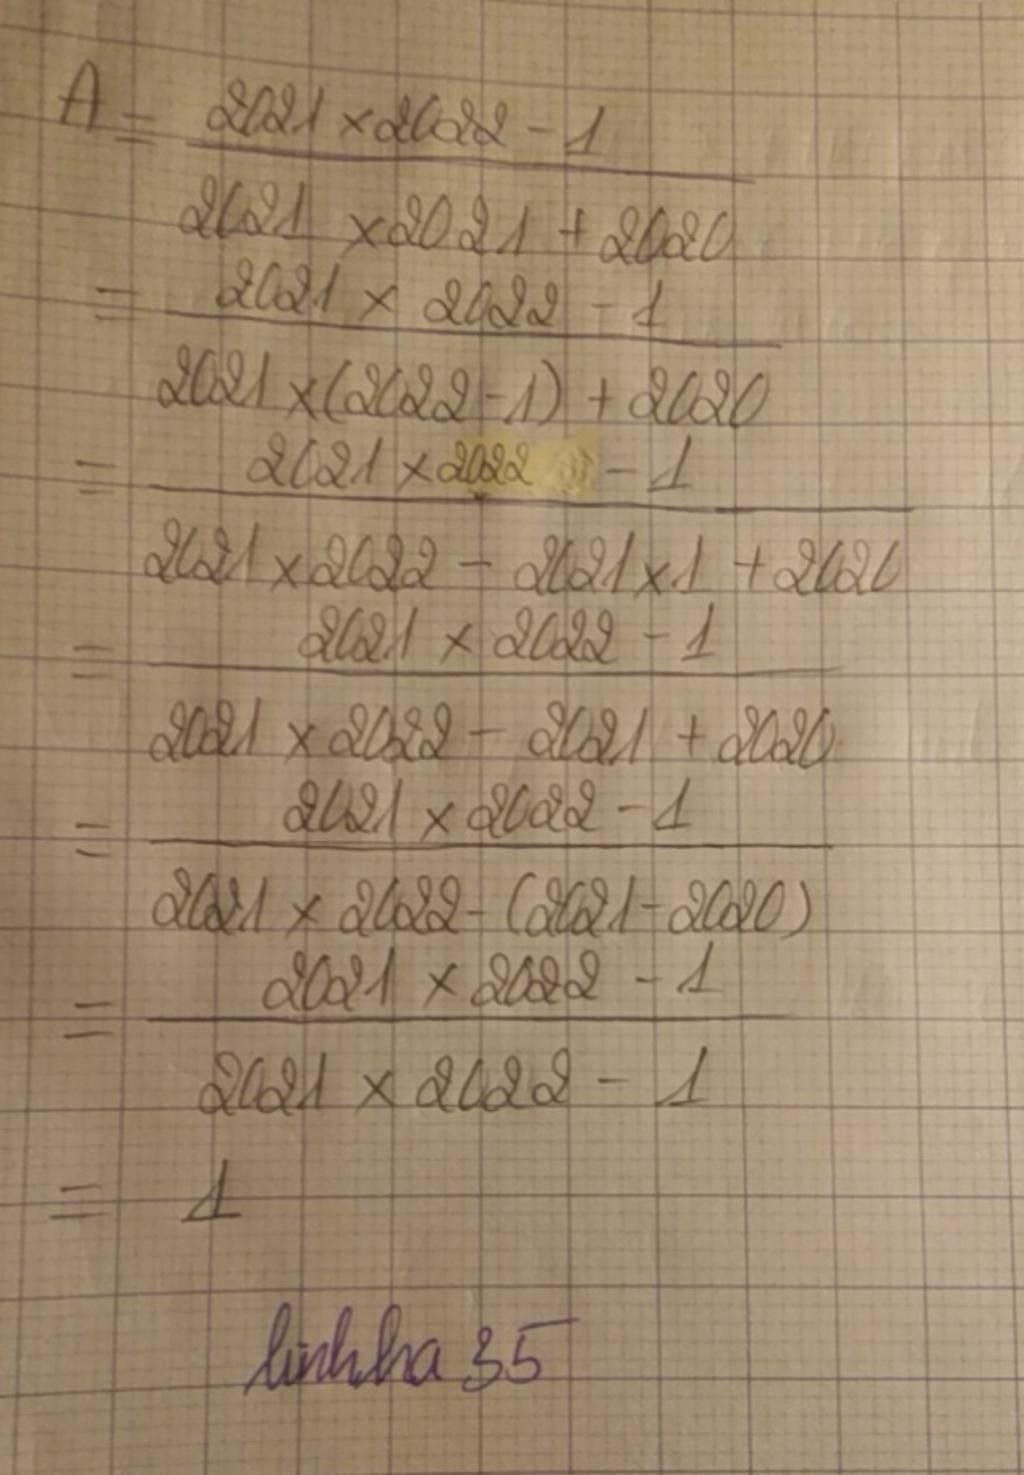 A = 2021 × 2022 - 1
2021 × 2021 + 2020
= 2021 × 2022 - 1
2021 × (2022 - 1) + 2020
= 2021 × 2022 - 1
2021 × 2022 - 2021 × 1 + 2020
= 2021 × 2022 - 1
2021 × 2022 - 2021 + 2020
= 2021 × 2022 - 1
2021 × 2022 - (2021 - 2020)
= 2021 × 2022 - 1
2021 × 2022 - 1
= 1
linhha 35